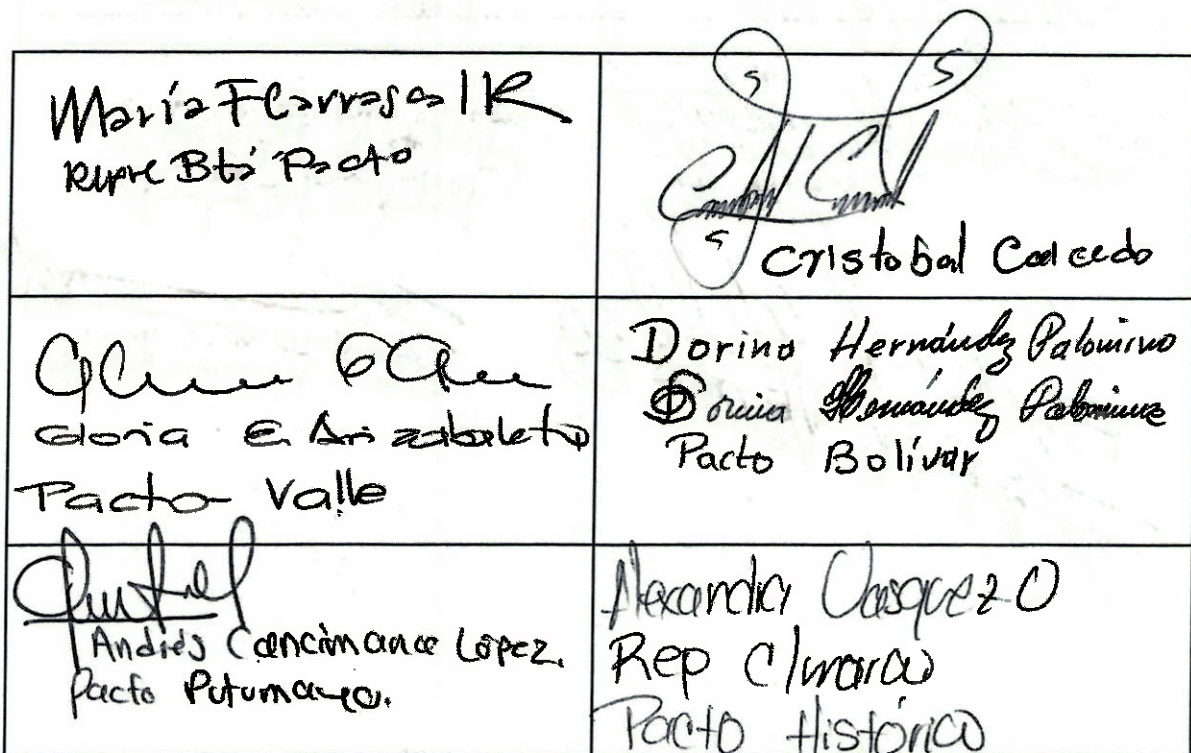 María F Carrascal R
Repre Btá Pacto
Cristobal Caicedo
Gloria E Arizabaleta
Pacto Valle
Dorina Hernández Palomino
Dorina Hernández Palomino
Pacto Bolívar
Andrés Cancimance López.
Pacto Putumayo.
Alexandra Vasquez O
Rep Cámara
Pacto Histórico